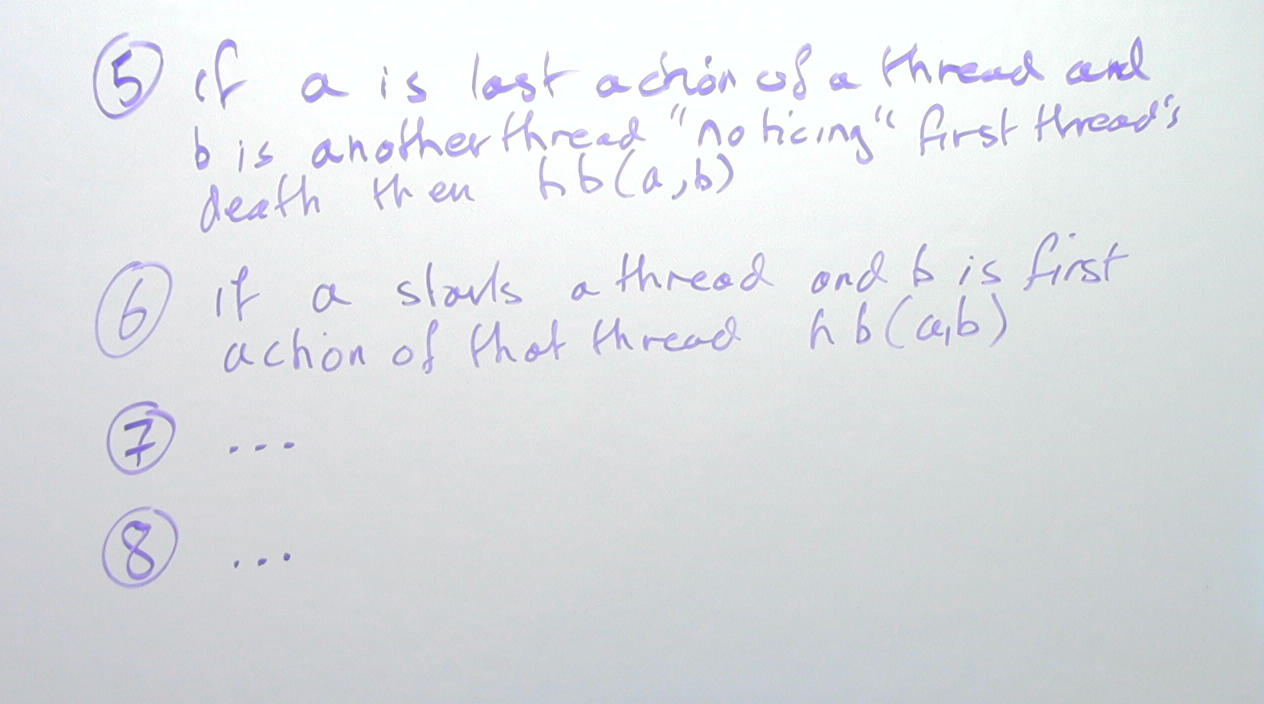 ⑤ if a is last action of a thread and
b is another thread "noticing" first thread's
death then hb(a,b)
⑥ if a starts a thread and b is first
action of that thread hb(a,b)
⑦ ...
⑧ ...